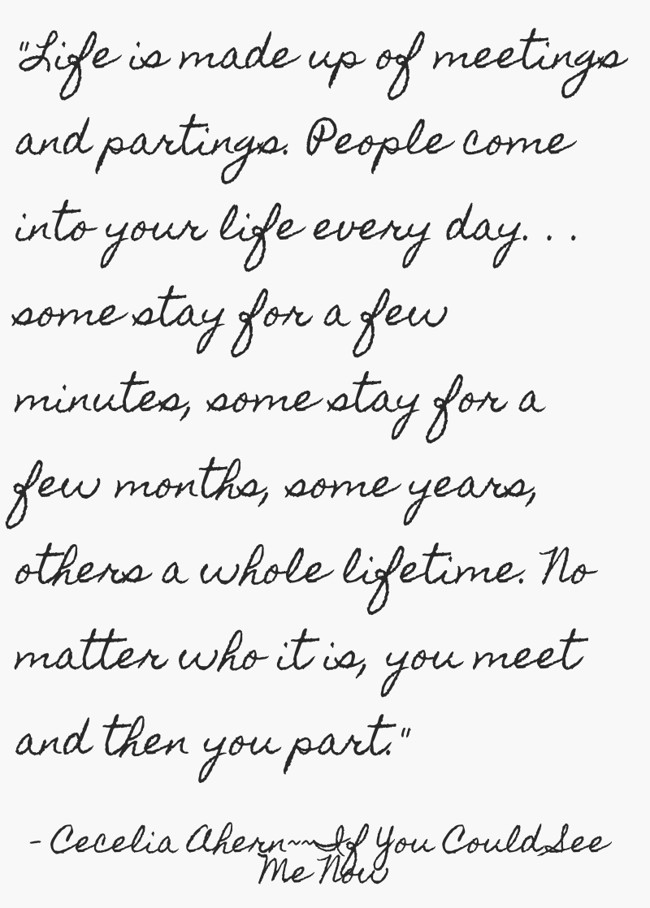 "Life is made up of meetings
and partings. People come
into your life every day. . .
some stay for a few
minutes, some stay for a
few months, some years,
others a whole lifetime. No
matter who it is, you meet
and then you part."
- Cecelia Ahern~~If You Could See
Me Now